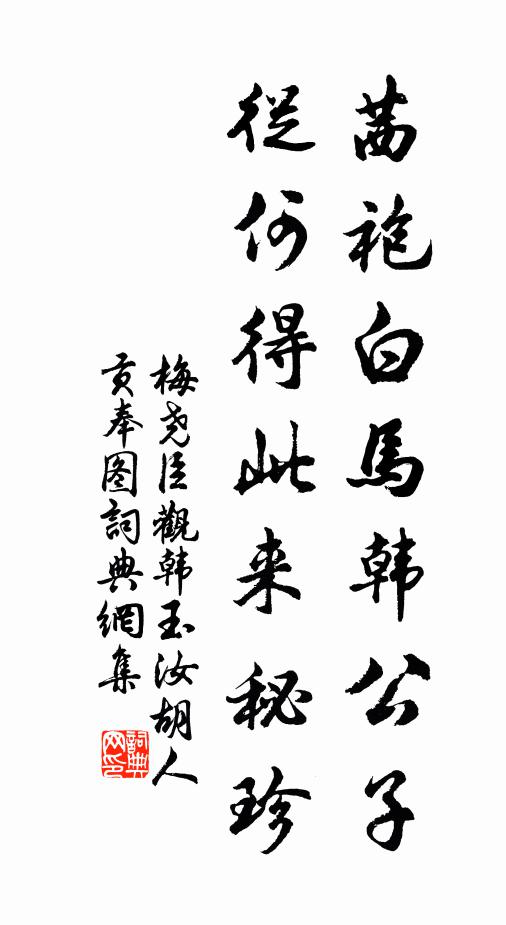 茜袍白馬韩公子
從何得此来秘珍
梅尧臣觀韩玉汝胡人
贡奉图詞典網集
詞典网印